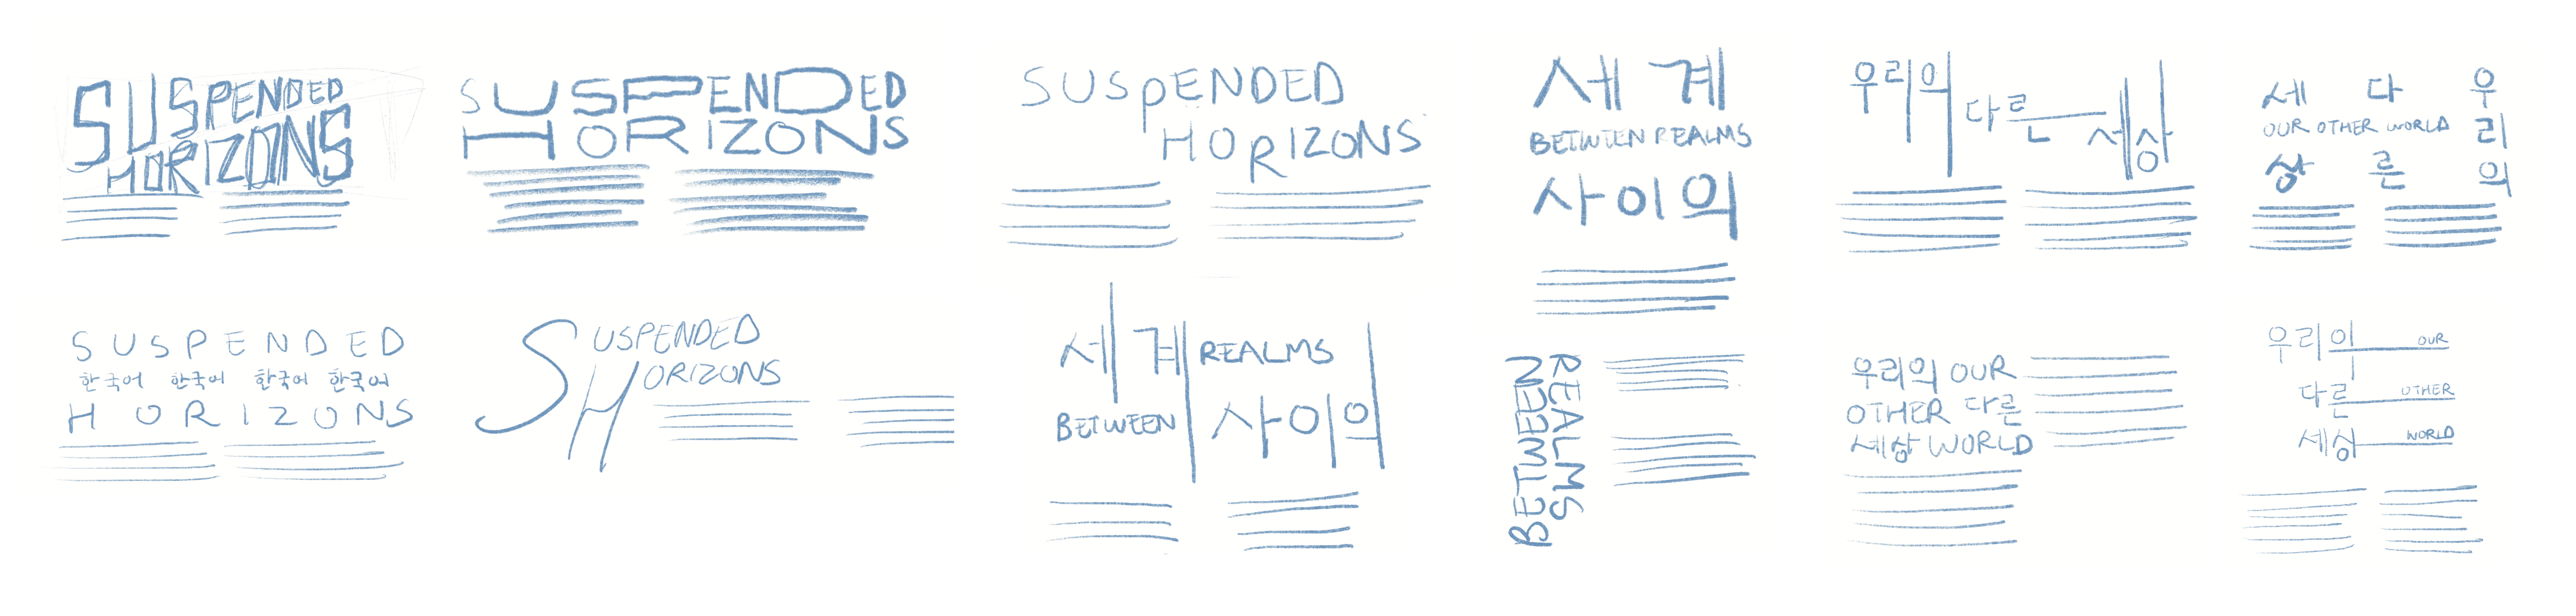 SUSPENDED
HORIZONS
SUSPENDED
HORIZONS
SUSpENDED
HORIZONS
세계
BETWEEN REALMS
사이의
우리의
다른
세상
세 다 우
OUR OTHER WORLD 리
상 른 의
SUSPENDED
한국어 한국어 한국어 한국어
HORIZONS
SUSPENDED
HORIZONS
세계 REALMS
BETWEEN 사이의
REALMS
BETWEEN
우리의 OUR
OTHER 다른
세상 WORLD
우리의 OUR
다른 OTHER
세상 WORLD